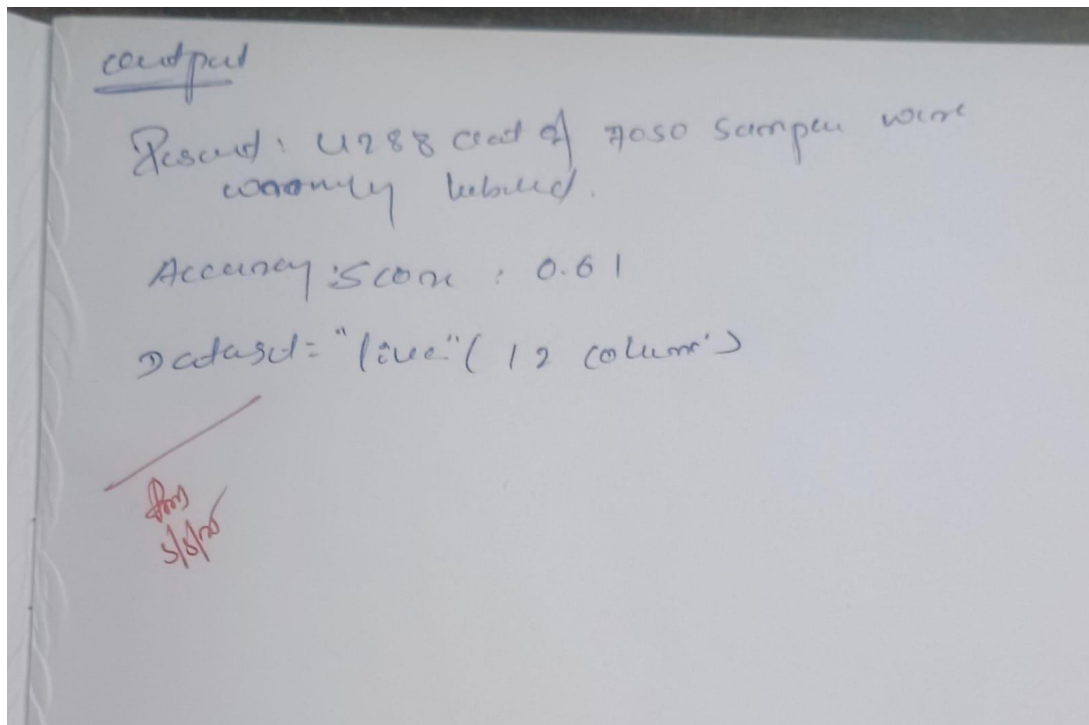 output
Result : 4288 out of 7050 sampeu were
wrongly labeled.
Accuracy Score : 0.61
Dataset = "live" ( 12 column's )
5/5/25